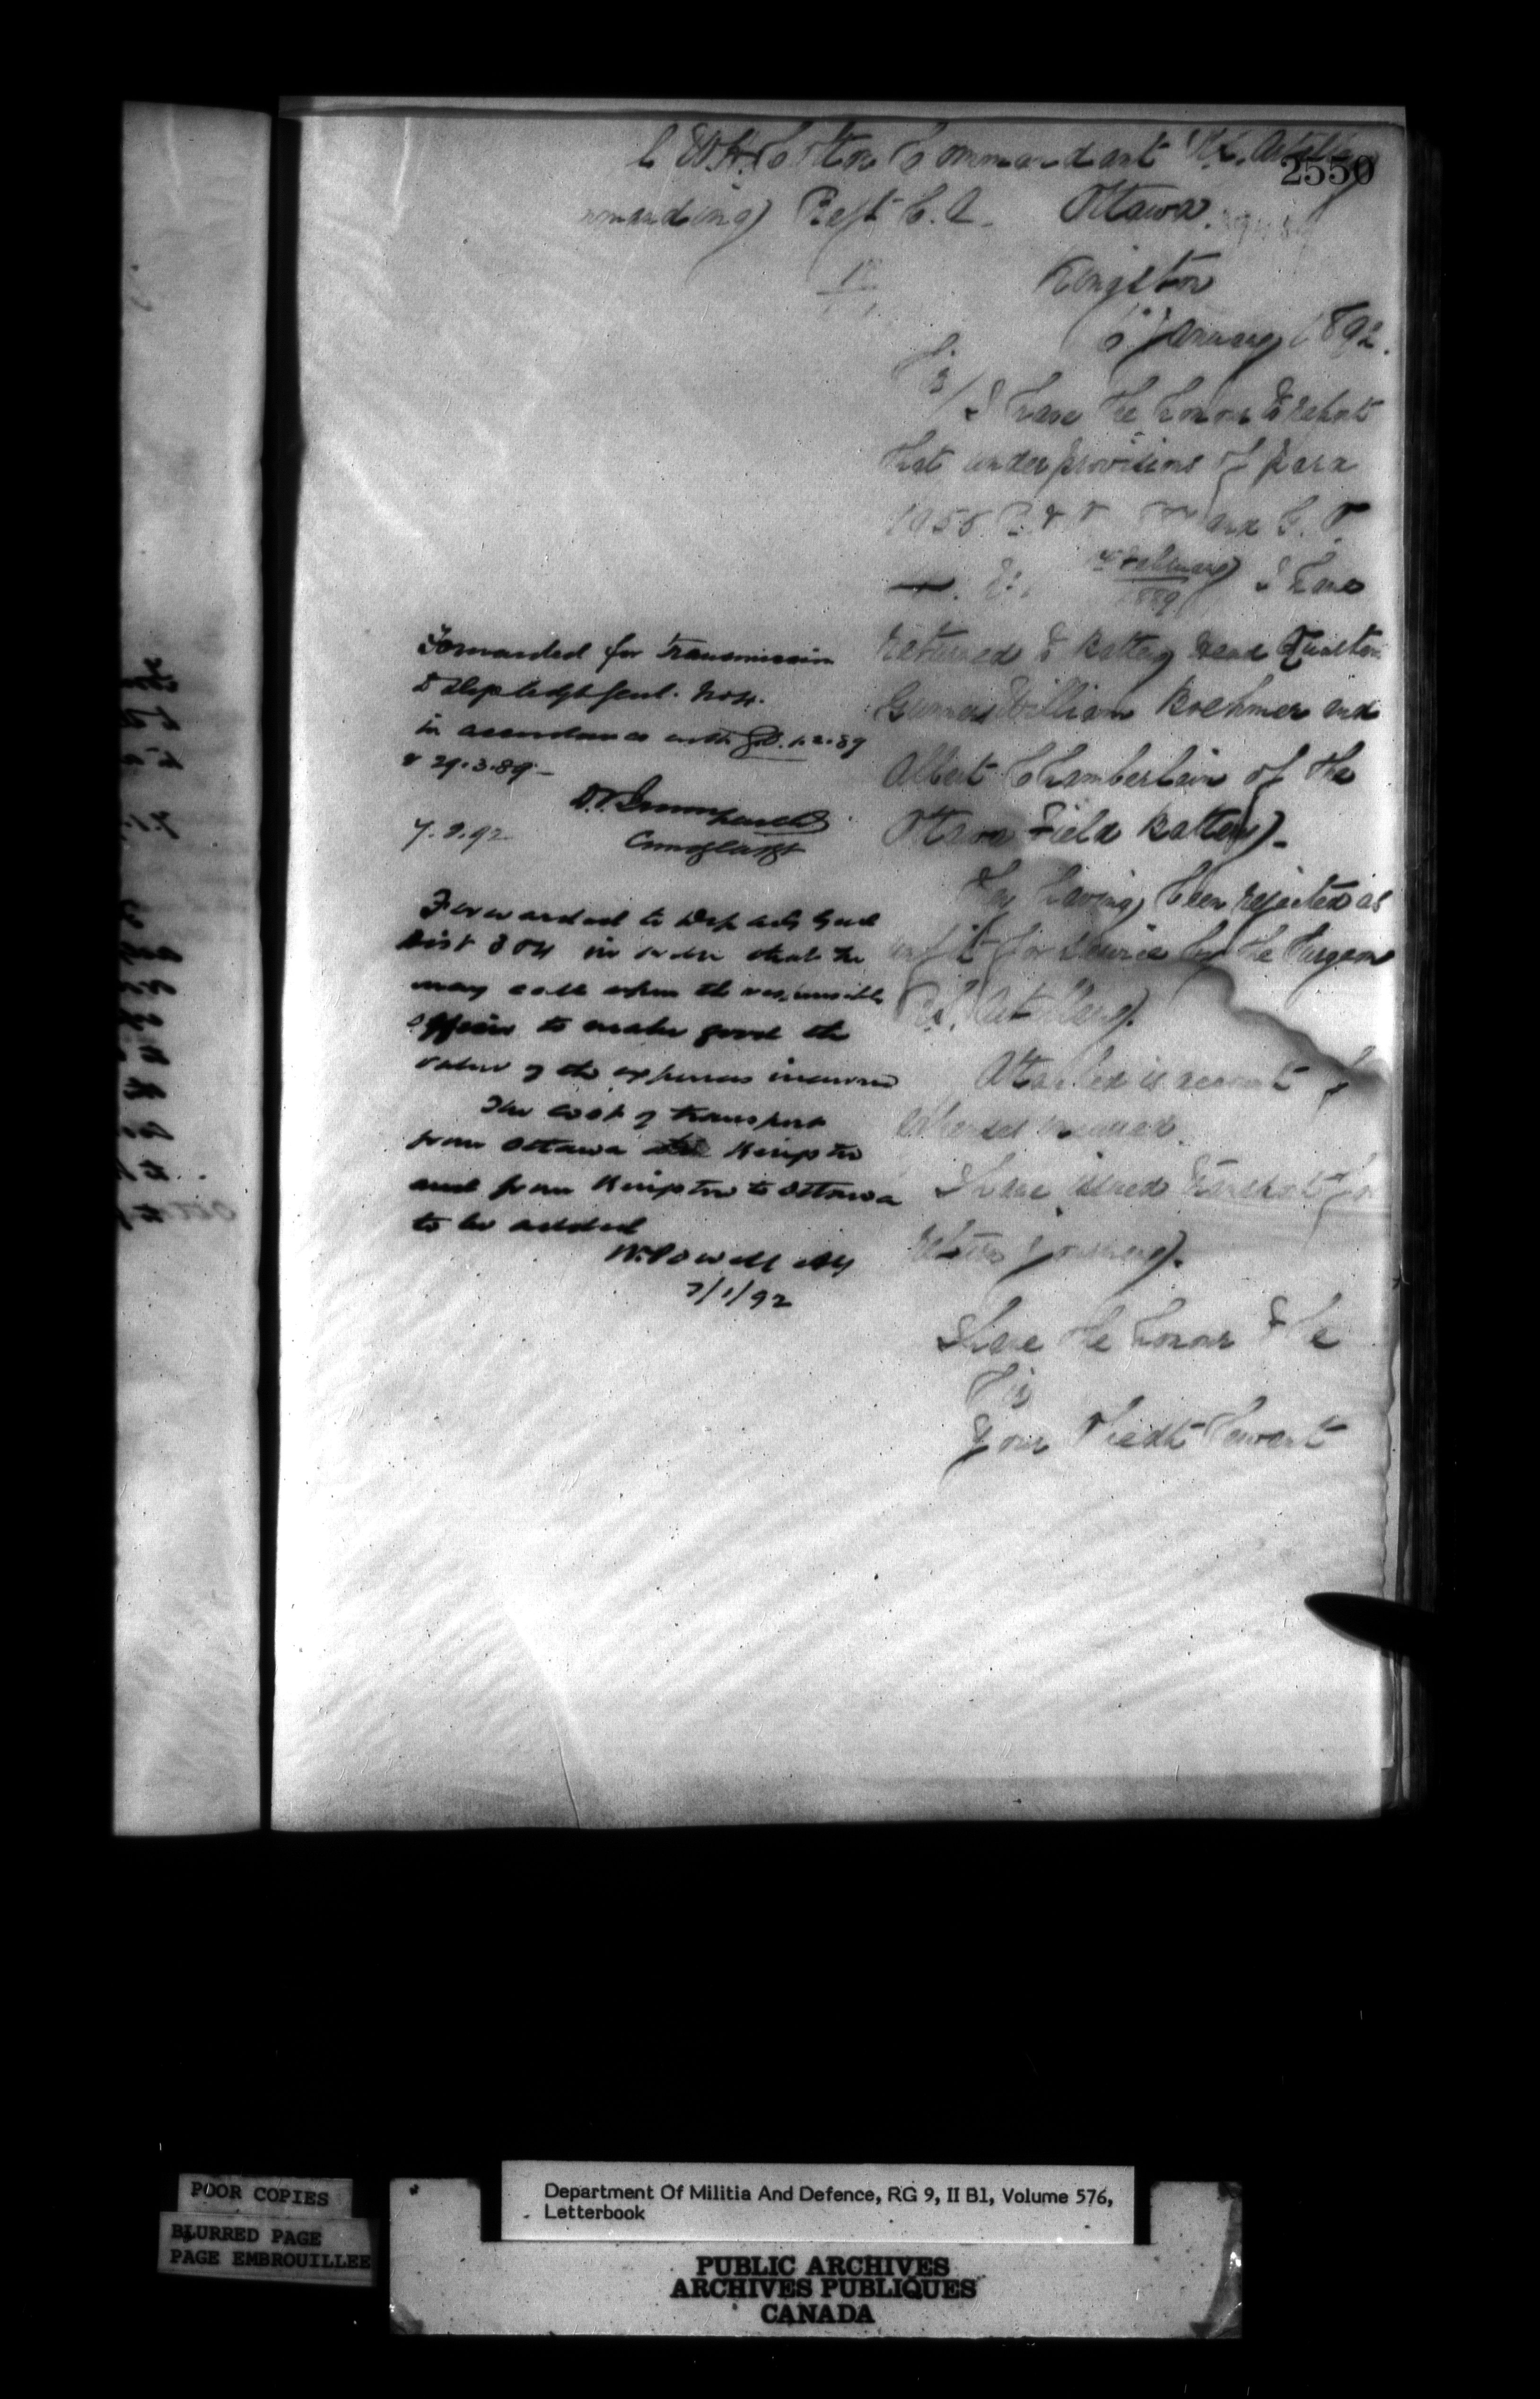 2550
W.H. Cotton Commandant R.S. Artillery
manding Regt C.A. Ottawa.
Kingston
6 January 1892.
Sir
I have the honour to report
that under provisions of para
and G.O.
February 1889 I have
returned to Battery Head Quarters
Gunners William Boehmer and
Albert Chamberlain of the
Ottawa Field Battery.
They having been rejected as
unfit for service by the Surgeon
Artillery.
Attached is account of
expenses incurred.
I have issued transport for
return journey.
I have the honour to be
Sir
Your Obedt Servant
Forwarded for transmission
to Dep Adjt Genl. No 4.
in accordance with G.O. 1.2.89
& 29.3.89 -
7.1.92
Forwarded to Dep Adj Genl
Dist 3 & 4 in order that he
may call upon the responsible
officer to make good the
value of the expenses incurred
The cost of transport
from Ottawa to Kingston
and from Kingston to Ottawa
to be added
W. Powell AG
7/1/92
POOR COPIES
BLURRED PAGE
PAGE EMBROUILLEE
Department Of Militia And Defence, RG 9, II B1, Volume 576,
Letterbook
PUBLIC ARCHIVES
ARCHIVES PUBLIQUES
CANADA